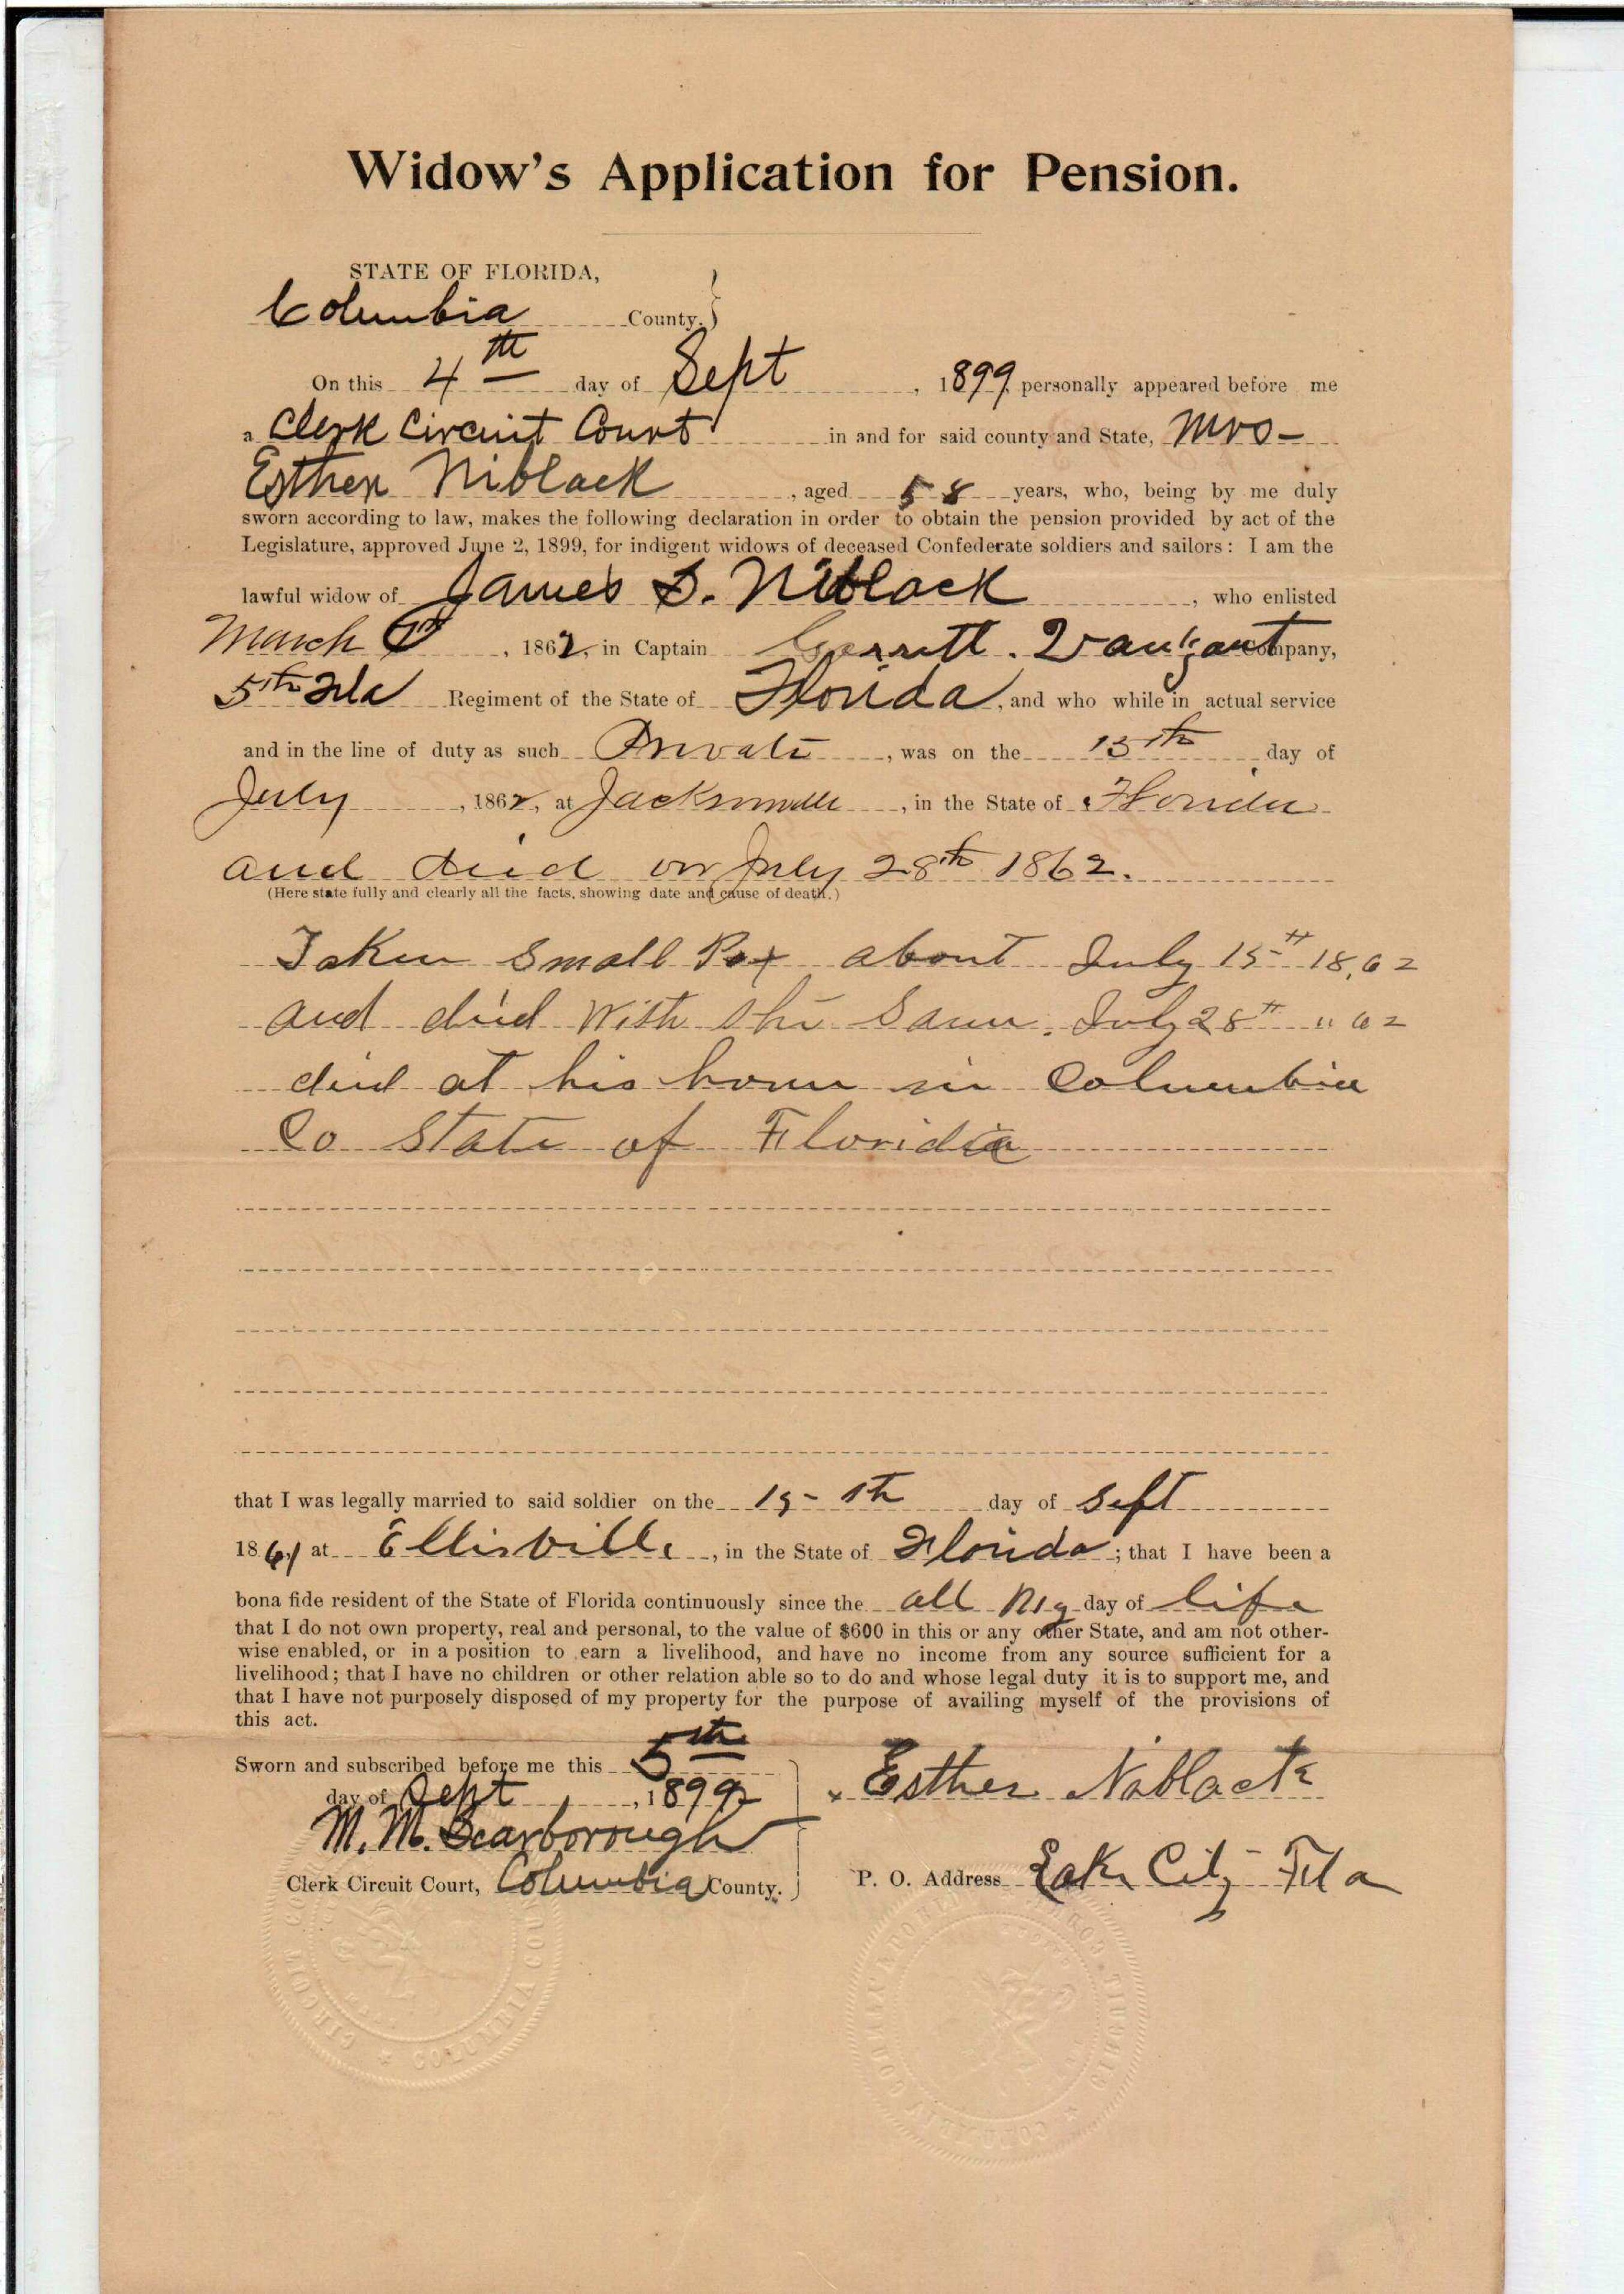 Widow's Application for Pension.
STATE OF FLORIDA,
Columbia County.
On this 4th day of Sept, 1899, personally appeared before me
a Clerk Circuit Court in and for said county and State, Mrs-
Esther Niblack, aged 58 years, who, being by me duly
sworn according to law, makes the following declaration in order to obtain the pension provided by act of the
Legislature, approved June 2, 1899, for indigent widows of deceased Confederate soldiers and sailors: I am the
lawful widow of James S. Niblack, who enlisted
March, 1862, in Captain Garrett. Vanzant Company,
5th Fla Regiment of the State of Florida, and who while in actual service
and in the line of duty as such Private, was on the 15th day of
July, 1862, at Jacksonville, in the State of Florida
and died on July 28th 1862.
(Here state fully and clearly all the facts, showing date and cause of death.)
Taken Small Pox about July 15th 18,62
and died with the Same. July 28th " 62
died at his home in Columbia
Co State of Florida
that I was legally married to said soldier on the 15-th day of Sept
1861, at Ellisville, in the State of Florida; that I have been a
bona fide resident of the State of Florida continuously since the all my day of life
that I do not own property, real and personal, to the value of $600 in this or any other State, and am not other-
wise enabled, or in a position to earn a livelihood, and have no income from any source sufficient for a
livelihood; that I have no children or other relation able so to do and whose legal duty it is to support me, and
that I have not purposely disposed of my property for the purpose of availing myself of the provisions of
this act.
Sworn and subscribed before me this 5th
day of Sept, 1899
Esther Niblack
M. M. Scarborough
Clerk Circuit Court, Columbia County.
P. O. Address Lake City Fla
CIRCUIT COURT * COLUMBIA COUNTY